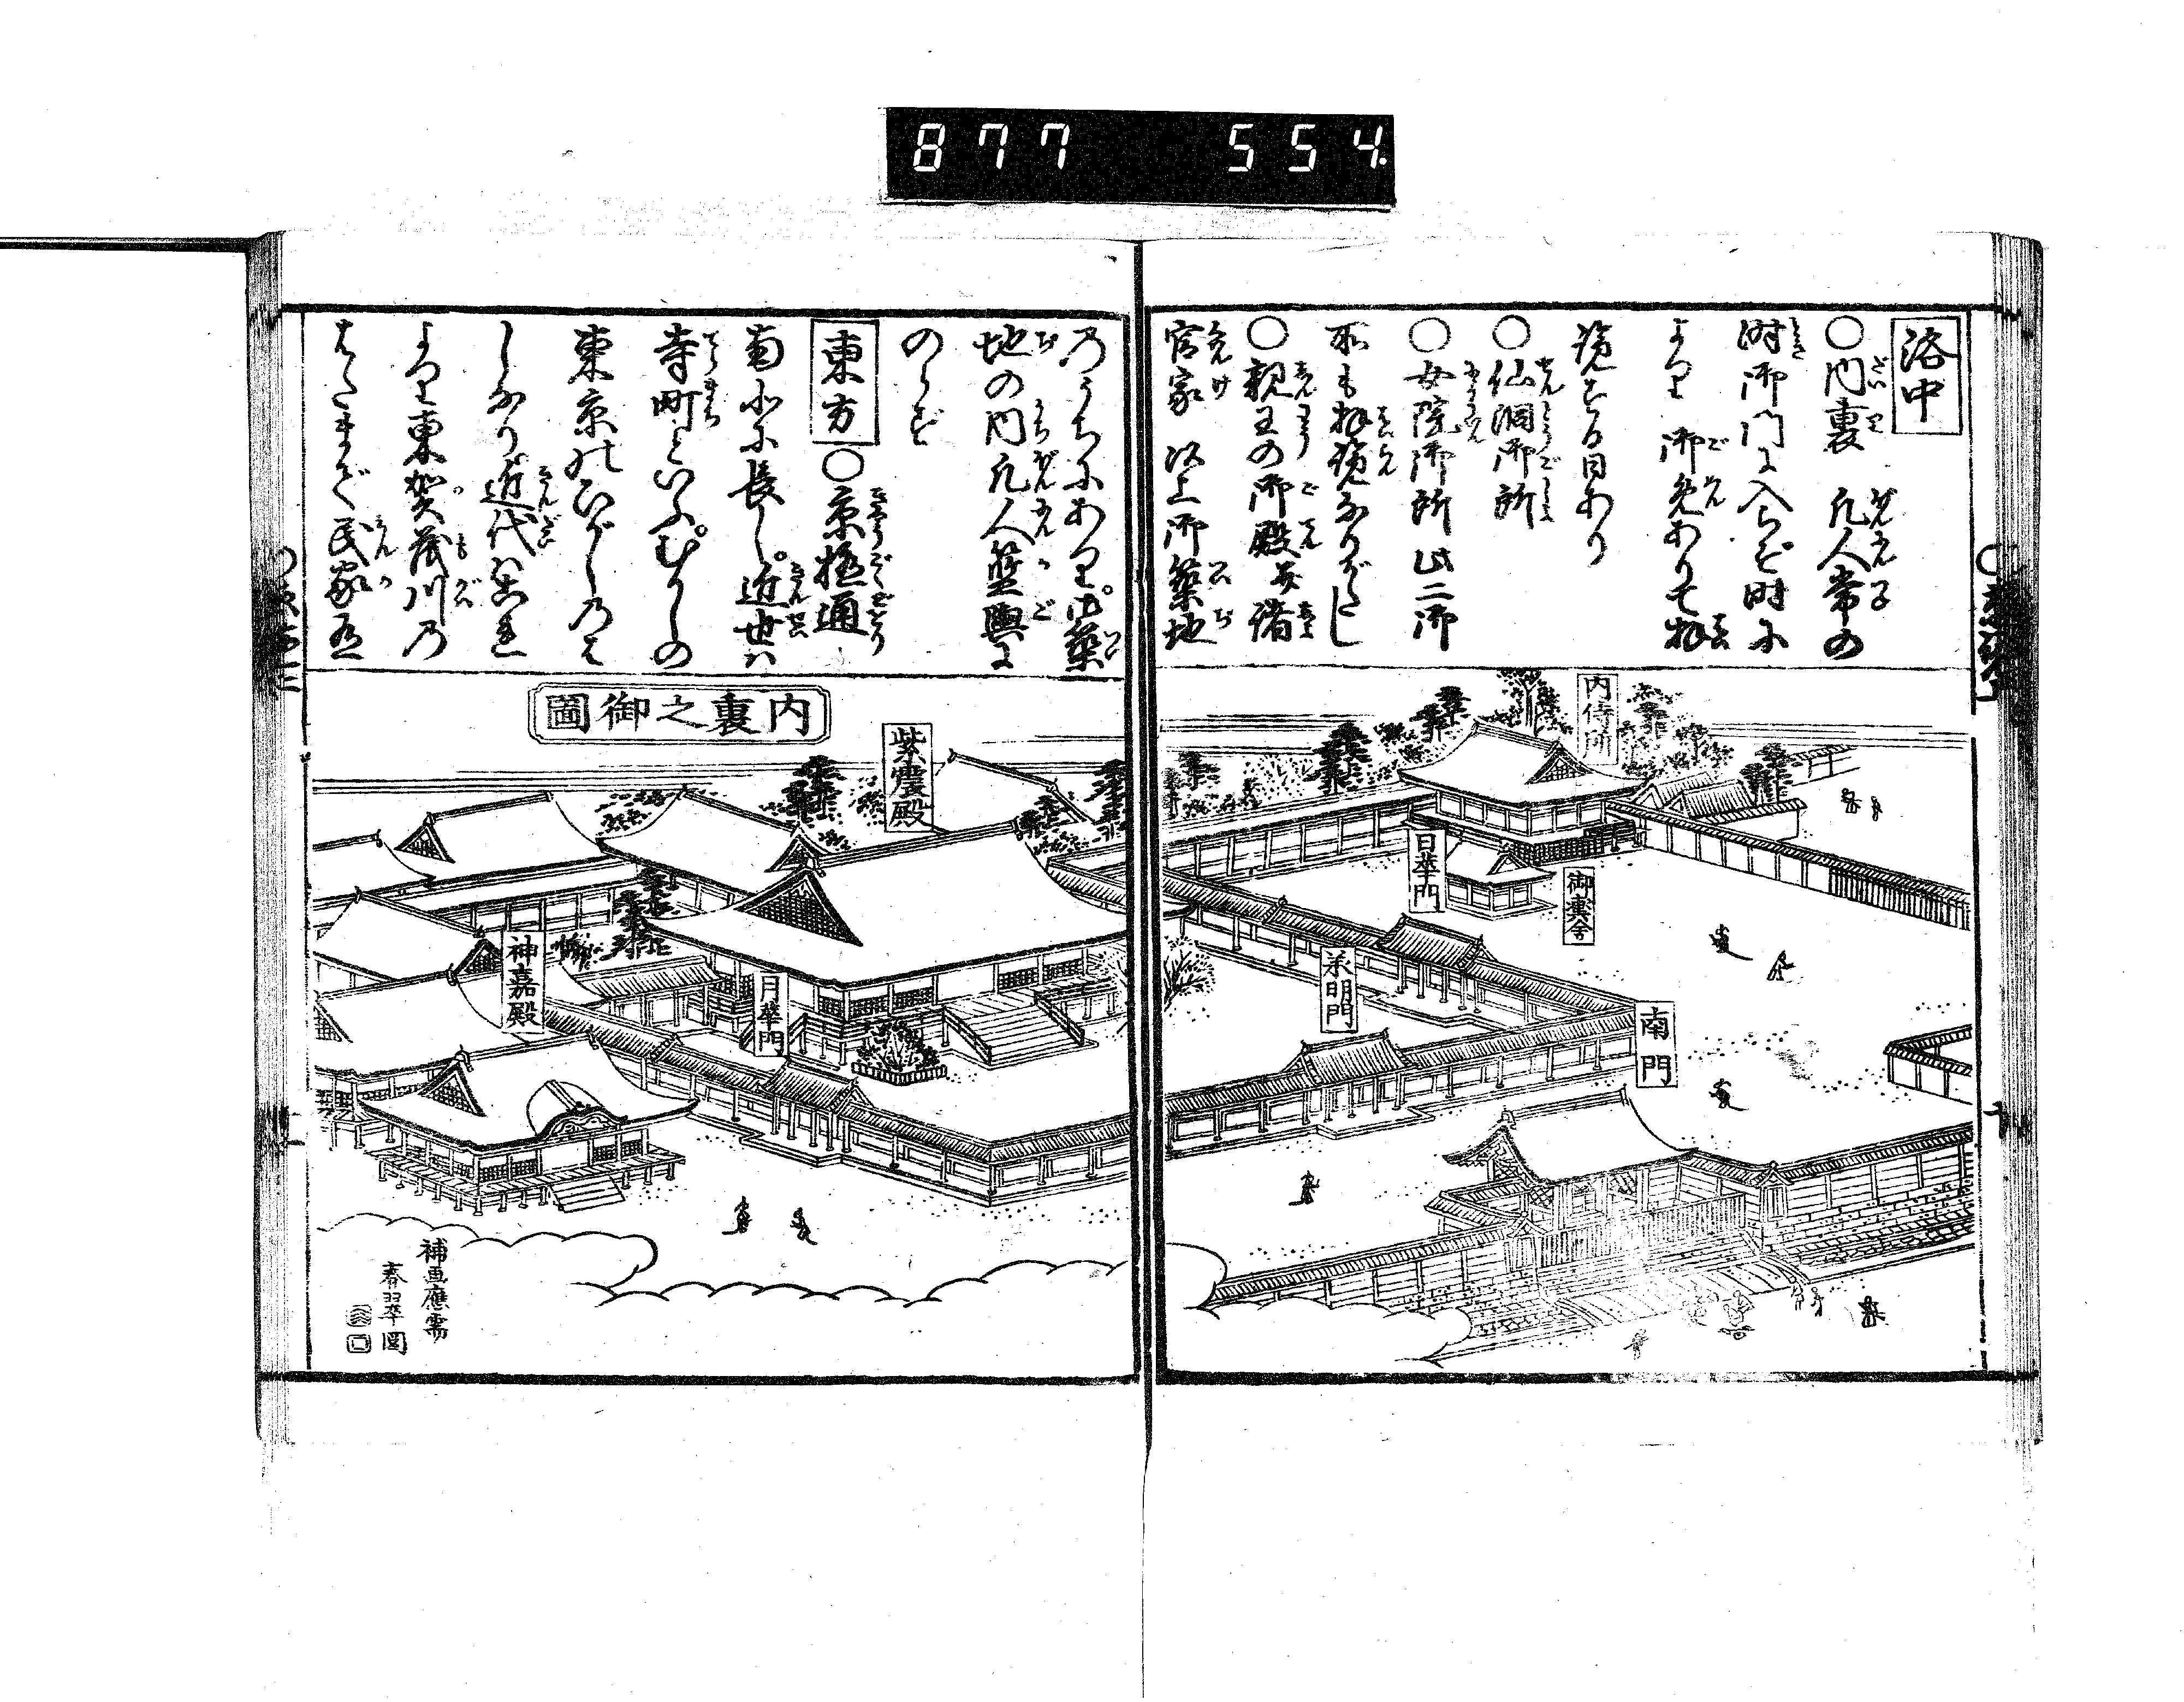 877 554.
洛中
○内裏 凡人常の
時御門に入らず時に
より 御免ありて拝
覧する日あり
○仙洞御所
○女院御所 此二御
所も拝覧なりがたし
○親王の御殿并諸
官家 以上御築地
のうちにあり。御築
地の内凡人篮輿に
のらず
東方 ○京極通
南北に長し。近世ハ
寺町といふ。むかしの
東京のひがしのは
しなり。近代ハこれ
より東賀茂川の
はたまで民家
内裏之御圖
内侍所
日華門
御輿舎
承明門
南門
紫宸殿
月華門
神嘉殿
補画應需
春翠圖